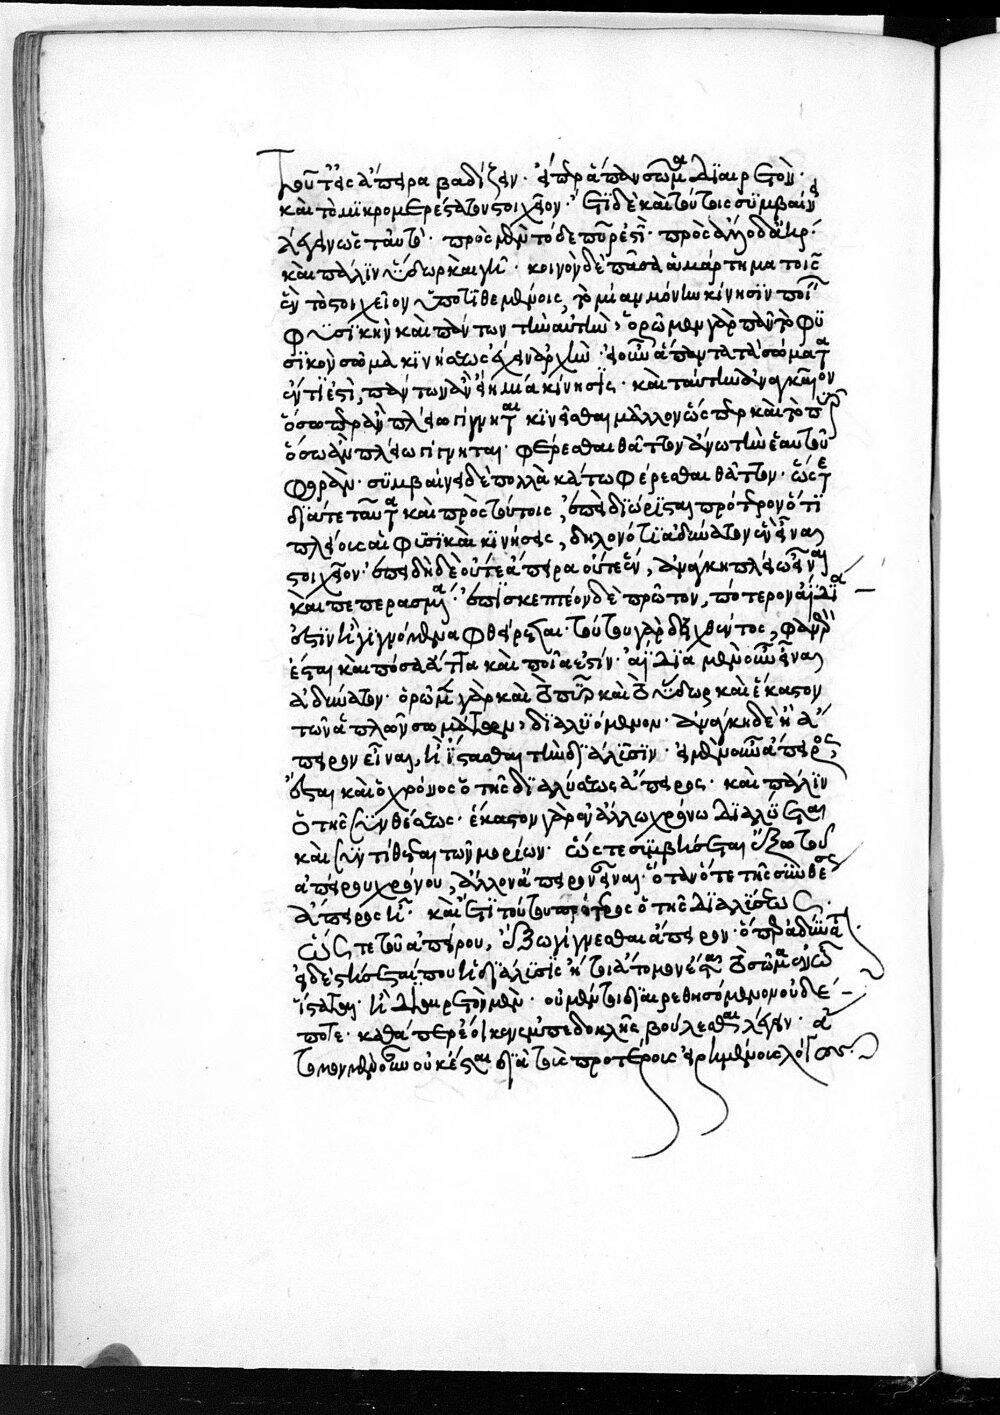 τοῦτ' εἰς ἄπειρα βαδίζειν· εἴπερ ἅπαν σῶμα διαιρετὸν·
καὶ τὸ μικρομερέστατον στοιχεῖον· ἔτι δὲ καὶ τούτοις συμβαίνει
λέγειν ὡς ταὐτὸ· πρὸς μὲν τόδε πῦρ ἐστὶ· πρὸς ἄλλο δ' ἀὴρ·
καὶ πάλιν ὕδωρ καὶ γῆ· κοινὸν δὲ πᾶσιν ἁμάρτημα τοῖς
ἓν τὸ στοιχεῖον ὑποτιθεμένοις, τὸ μίαν μόνην κίνησιν ποιεῖν
φυσικὴν καὶ πάντων τὴν αὐτήν· ὁρῶμεν γὰρ πᾶν τὸ φυ
σικὸν σῶμα κινήσεως ἔχον ἀρχήν· εἰ οὖν ἅπαντα τὰ σώματα
ἕν τι ἐστὶ, πάντων ἂν εἴη μία κίνησις· καὶ ταύτην ἀναγκαῖον
ὅσωπερ ἂν πλείω γίγνηται κινεῖσθαι μᾶλλον ὥσπερ καὶ τὸ πῦρ
ὅσω ἂν πλείω γίγνηται· φέρεσθαι θᾶττον ἄνω τὴν ἑαυτοῦ
φορὰν· συμβαίνει δὲ πολλὰ κάτω φέρεσθαι θᾶττον· ὥστε
διά τε ταῦτα καὶ πρὸς τούτοις, ἐπεὶ διώρισται πρότερον ὅτι
πλείους αἱ φυσικαὶ κινήσεις, δῆλον ὅτι ἀδύνατον ἓν εἶναι
στοιχεῖον· ἐπεὶ δὴ δὲ οὔτε ἄπειρα οὔτε ἓν, ἀνάγκη πλείω εἶναι
καὶ πεπερασμένα· ἐπισκεπτέον δὲ πρῶτον, πότερον ἀΐδιά
ἐστιν ἢ γιγνόμενα φθείρεται· τούτου γὰρ δειχθέντος, φανερὸν
ἔσται καὶ πόσα ἄττα καὶ ποῖα ἐστίν· ἀΐδια μὲν οὖν εἶναι
ἀδύνατον· ὁρῶμεν γὰρ καὶ τὸ πῦρ καὶ τὸ ὕδωρ καὶ ἕκαστον
τῶν ἁπλῶν σωμάτων, διαλυόμενον· ἀνάγκη δὲ ἢ ἄ
πειρον εἶναι, ἢ ἵστασθαι τὴν διάλυσιν· εἰ μὲν οὖν ἄπειρος
ἔσται καὶ ὁ χρόνος ὁ τῆς διαλύσεως ἄπειρος· καὶ πάλιν
ὁ τῆς συνθέσεως· ἕκαστον γὰρ ἐν ἄλλω χρόνω διαλύεται
καὶ συντίθεται τῶν μορίων· ὥστε συμβήσεται ἔξω τοῦ
ἀπείρου χρόνου, ἄλλον ἄπειρον εἶναι· ὅταν ὅ τε τῆς συνθέσεως
ἄπειρος ἦ· καὶ ἔτι τούτου πρότερος ὁ τῆς διαλύσεως·
ὥστε τοῦ ἀπείρου, ἔξω γίγνεσθαι ἄπειρον· ὅπερ ἀδύνατον·
εἰ δὲ στήσεται που ἡ διάλυσις ἤτοι ἄτομον ἔσται τὸ σῶμα ἐν ὧ
ἵσταται· ἢ διαιρετὸν μὲν· οὐ μέντοι διαιρεθησόμενον οὐδέ
ποτε· καθάπερ ἔοικεν ἐμπεδοκλῆς βούλεσθαι λέγειν· ἄ
τομον μὲν οὖν οὐκ ἔσται διὰ τοὺς πρότερον εἰρημένους λόγους·